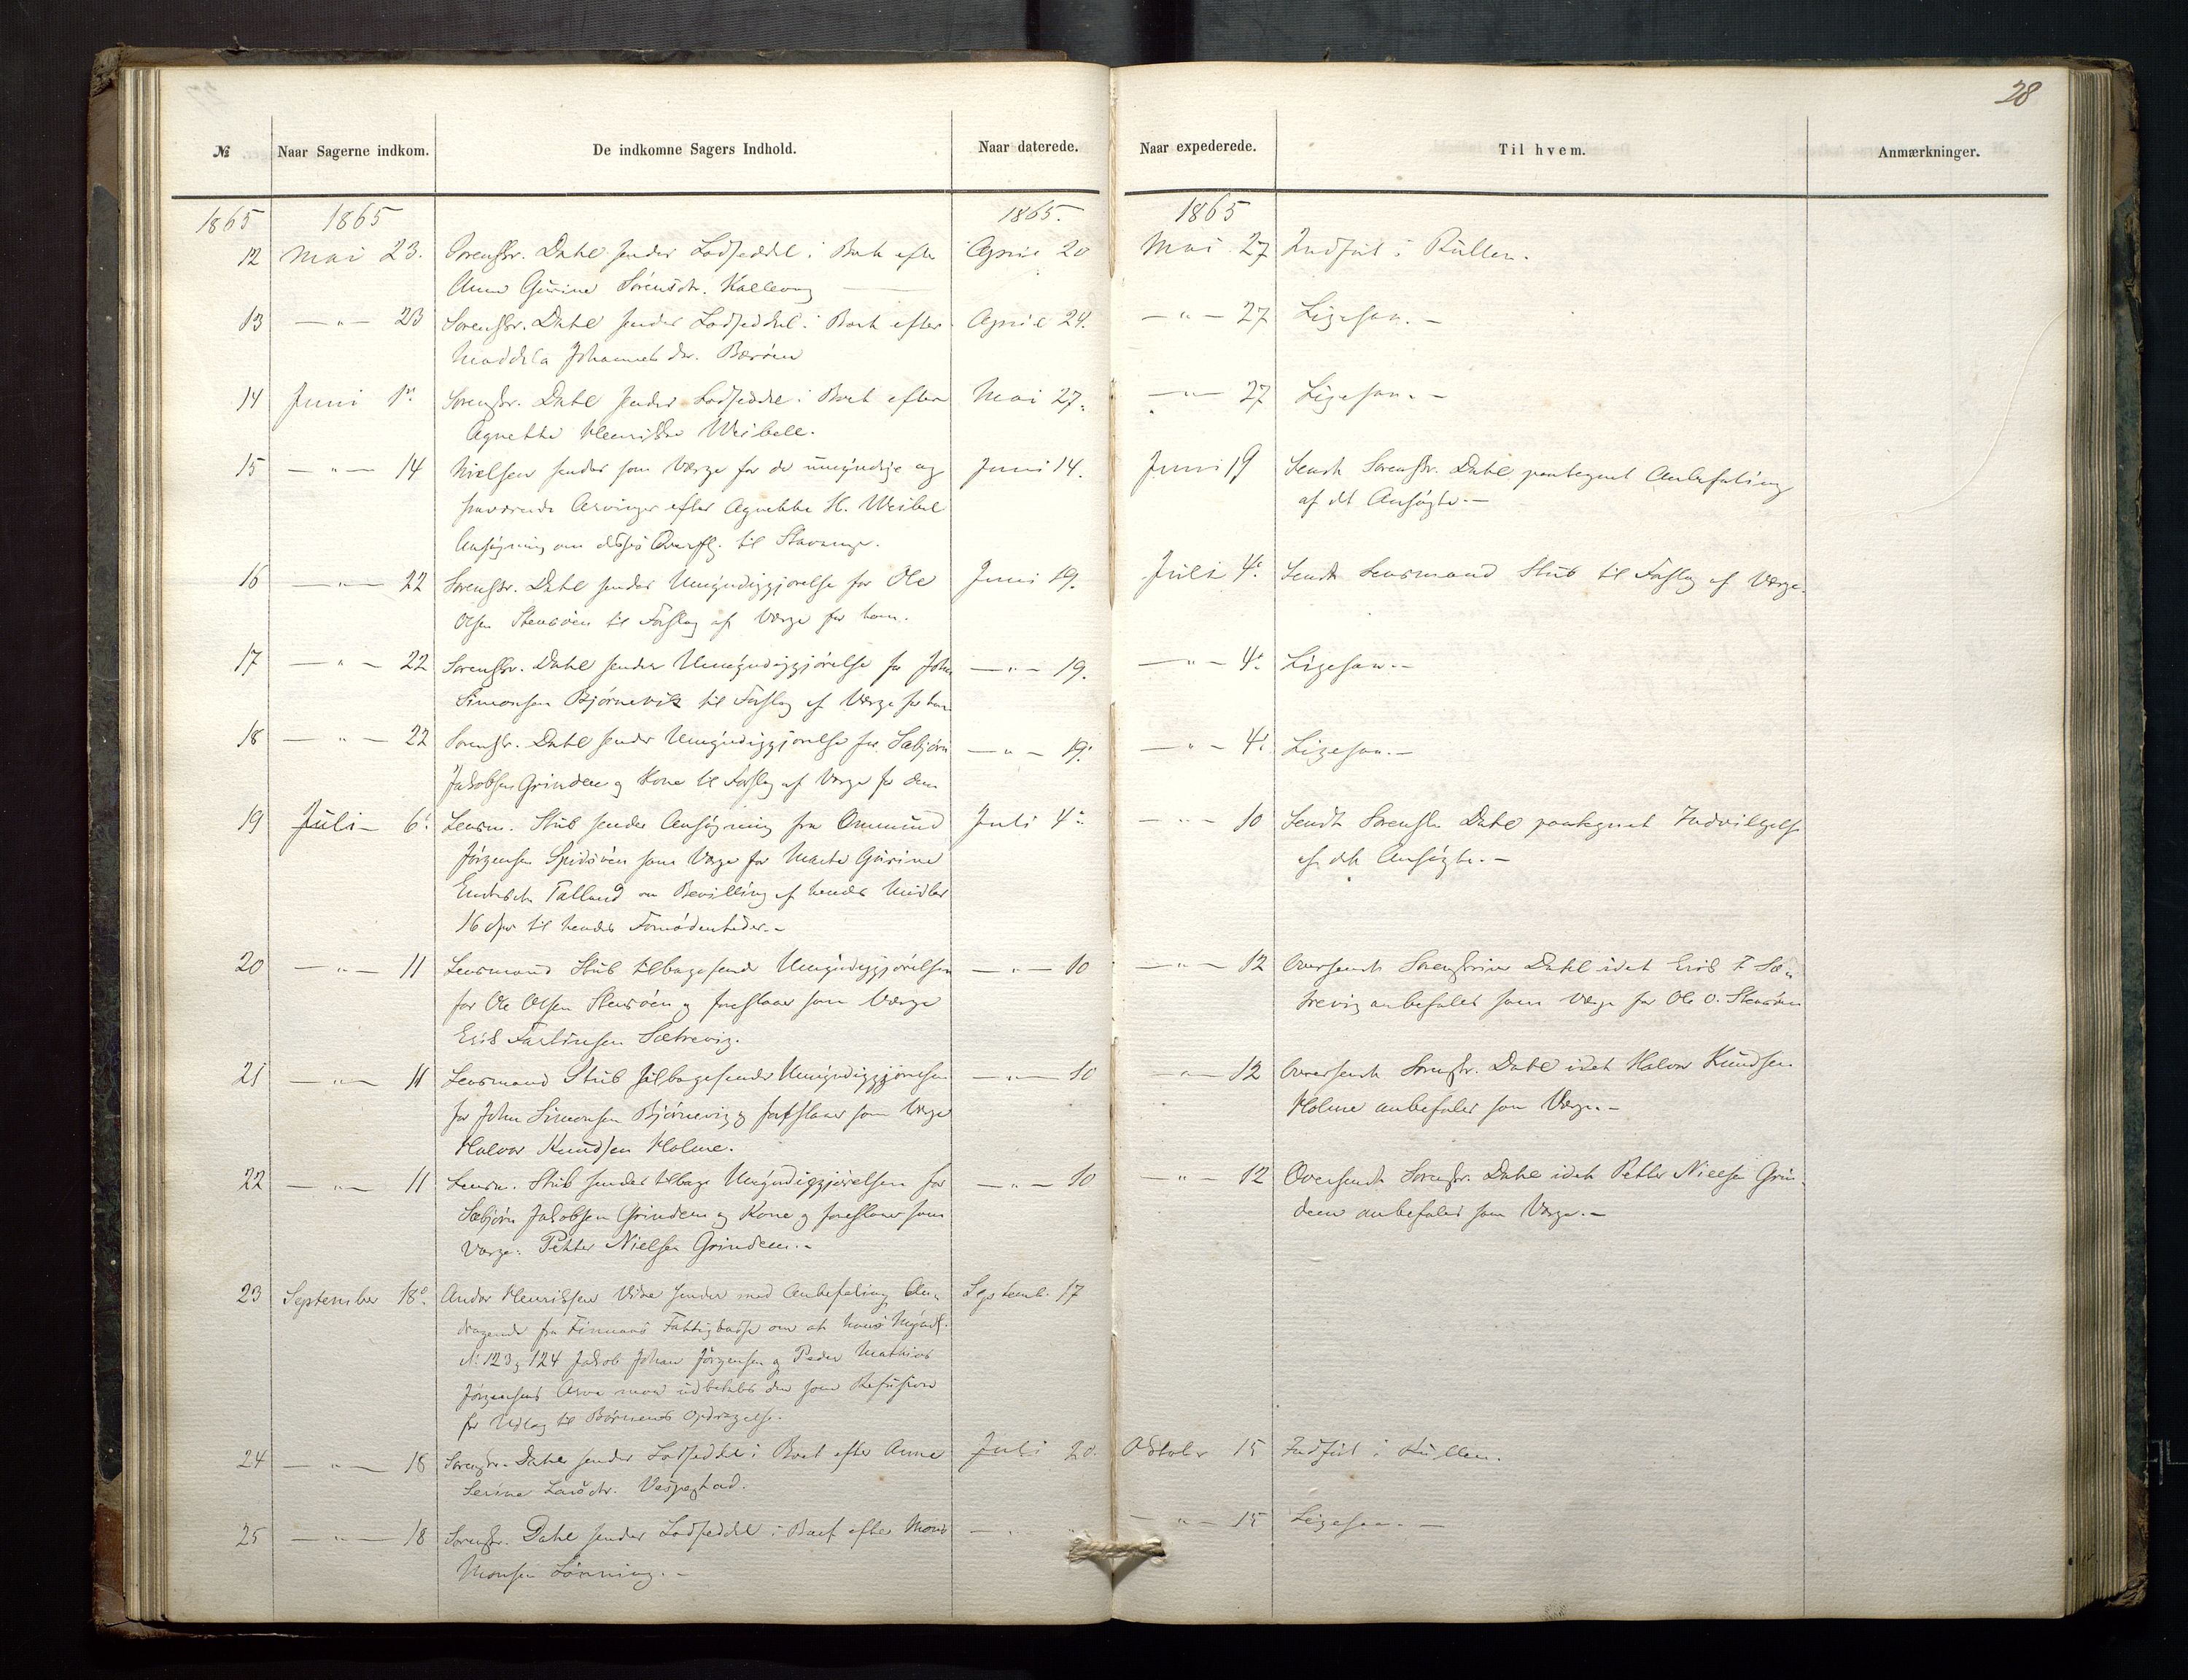 28
№ Naar Sagerne indkom. De indkomne Sagers Indhold. Naar daterede. Naar expederede. Til hvem. Anmærkninger.
1865 1865 1865. 1865
12 Mai 23. Sorenskr. Dahl sender Lodseddel i Boet efter April 20 Mai 27 Indført i Rullen.
Anne Gurine Sørensdtr. Kallevaag
13 — " — 23 Sorenskr. Dahl sender Lodseddel i Boet efter April 24. — " — 27 Ligesaa. —
Johannesdtr. Børøen
14 Juni 1ste Sorenskr. Dahl sender Lodseddel i Boet efter Mai 27. — " — 27 Ligesaa. —
Agnethe Henrikke Weibell.
15 — " — 14 Nielsen sender som Værge for de umyndige og Juni 14. Juni 19 Sendt Sorenskr. Dahl paategnet Anbefaling
fraværende Arvinger efter Agnethe H. Weibel af det Ansøgte. —
Ansøgning om disses til Stavanger.
16 — " — 22 Sorenskr. Dahl sender Umyndiggjørelse for Ole Juni 19. Juli 4de Sendt Lensmand Stub til Forslag af Værge.
Olsen Stensøen til Forslag af Værge for ham.
17 — " — 22 Sorenskr. Dahl sender Umyndiggjørelse for John — " — 19. — " — 4de Ligesaa. —
Simonsen Bjørnevik til Forslag af Værge for ham
18 — " — 22 Sorenskr. Dahl sender Umyndiggjørelse for Sæbjørn — " — 19. — " — 4de Ligesaa. —
Jakobsen Grindem og Kone til Forslag af Værge for dem
19 Juli 6te Lensm. Stub sender Ansøgning fra Ommund Juli 4de — " — 10 Sendt Sorenskr. Dahl paategnet Indvilgelse
Jørgensen Spidsøen som Værge for Marte Gurine af det Ansøgte. —
Endresdtr. Talland om Bevilling af hendes Midler
16 Spd til hendes Fornødenheder. —
20 — " — 11 Lensmand Stub tilbagesender Umyndiggjørelsen — " — 10 — " — 12 Oversendt Sorenskriver Dahl idet Erik T. Sæ-
for Ole Olsen Stensøen og foreslaaer som Værge trevig anbefales som Værge for Ole O. Stensøen
Erik Sætrevig.
21 — " — 11 Lensmand Stub tilbagesender Umyndiggjørelsen — " — 10 — " — 12 Oversendt Sorenskr. Dahl idet Halvor Knudsen
for John Simonsen Bjørnevig og foreslaaer som Værge Holme anbefales som Værge. —
Halvor Knudsen Holme.
22 — " — 11 Lensm. Stub sender tilbage Umyndiggjørelsen for — " — 10 — " — 12 Oversendt Sorenskr. Dahl idet Petter Nielsen Grin-
Sæbjørn Jakobsen Grindem og Kone og foreslaaer som dem anbefales som Værge. —
Værge: Petter Nielsen Grindem. —
23 September 18de Andor Henriksen Vike sender med Anbefaling An- Septemb. 17
dragende fra Finnaas Fattigkasse om at hans Myndl.
No 123 og 124 Jakob Johan Jørgensen og Peder Mathias
Jørgensens Arve maa udbetales den som Refusion
for Udlæg til Børnenes Opdragelse.
24 — " — 18 Sorenskr. Dahl sender Lodseddel i Boet efter Anne Juli 20. Oktober 15 Indført i Rullen.
Serine Larsdtr. Vespestad.
25 — " — 18 Sorenskr. Dahl sender Lodseddel i Boet efter Mons — " — " — " — 15 Ligesaa. —
Monsen Lønning. —